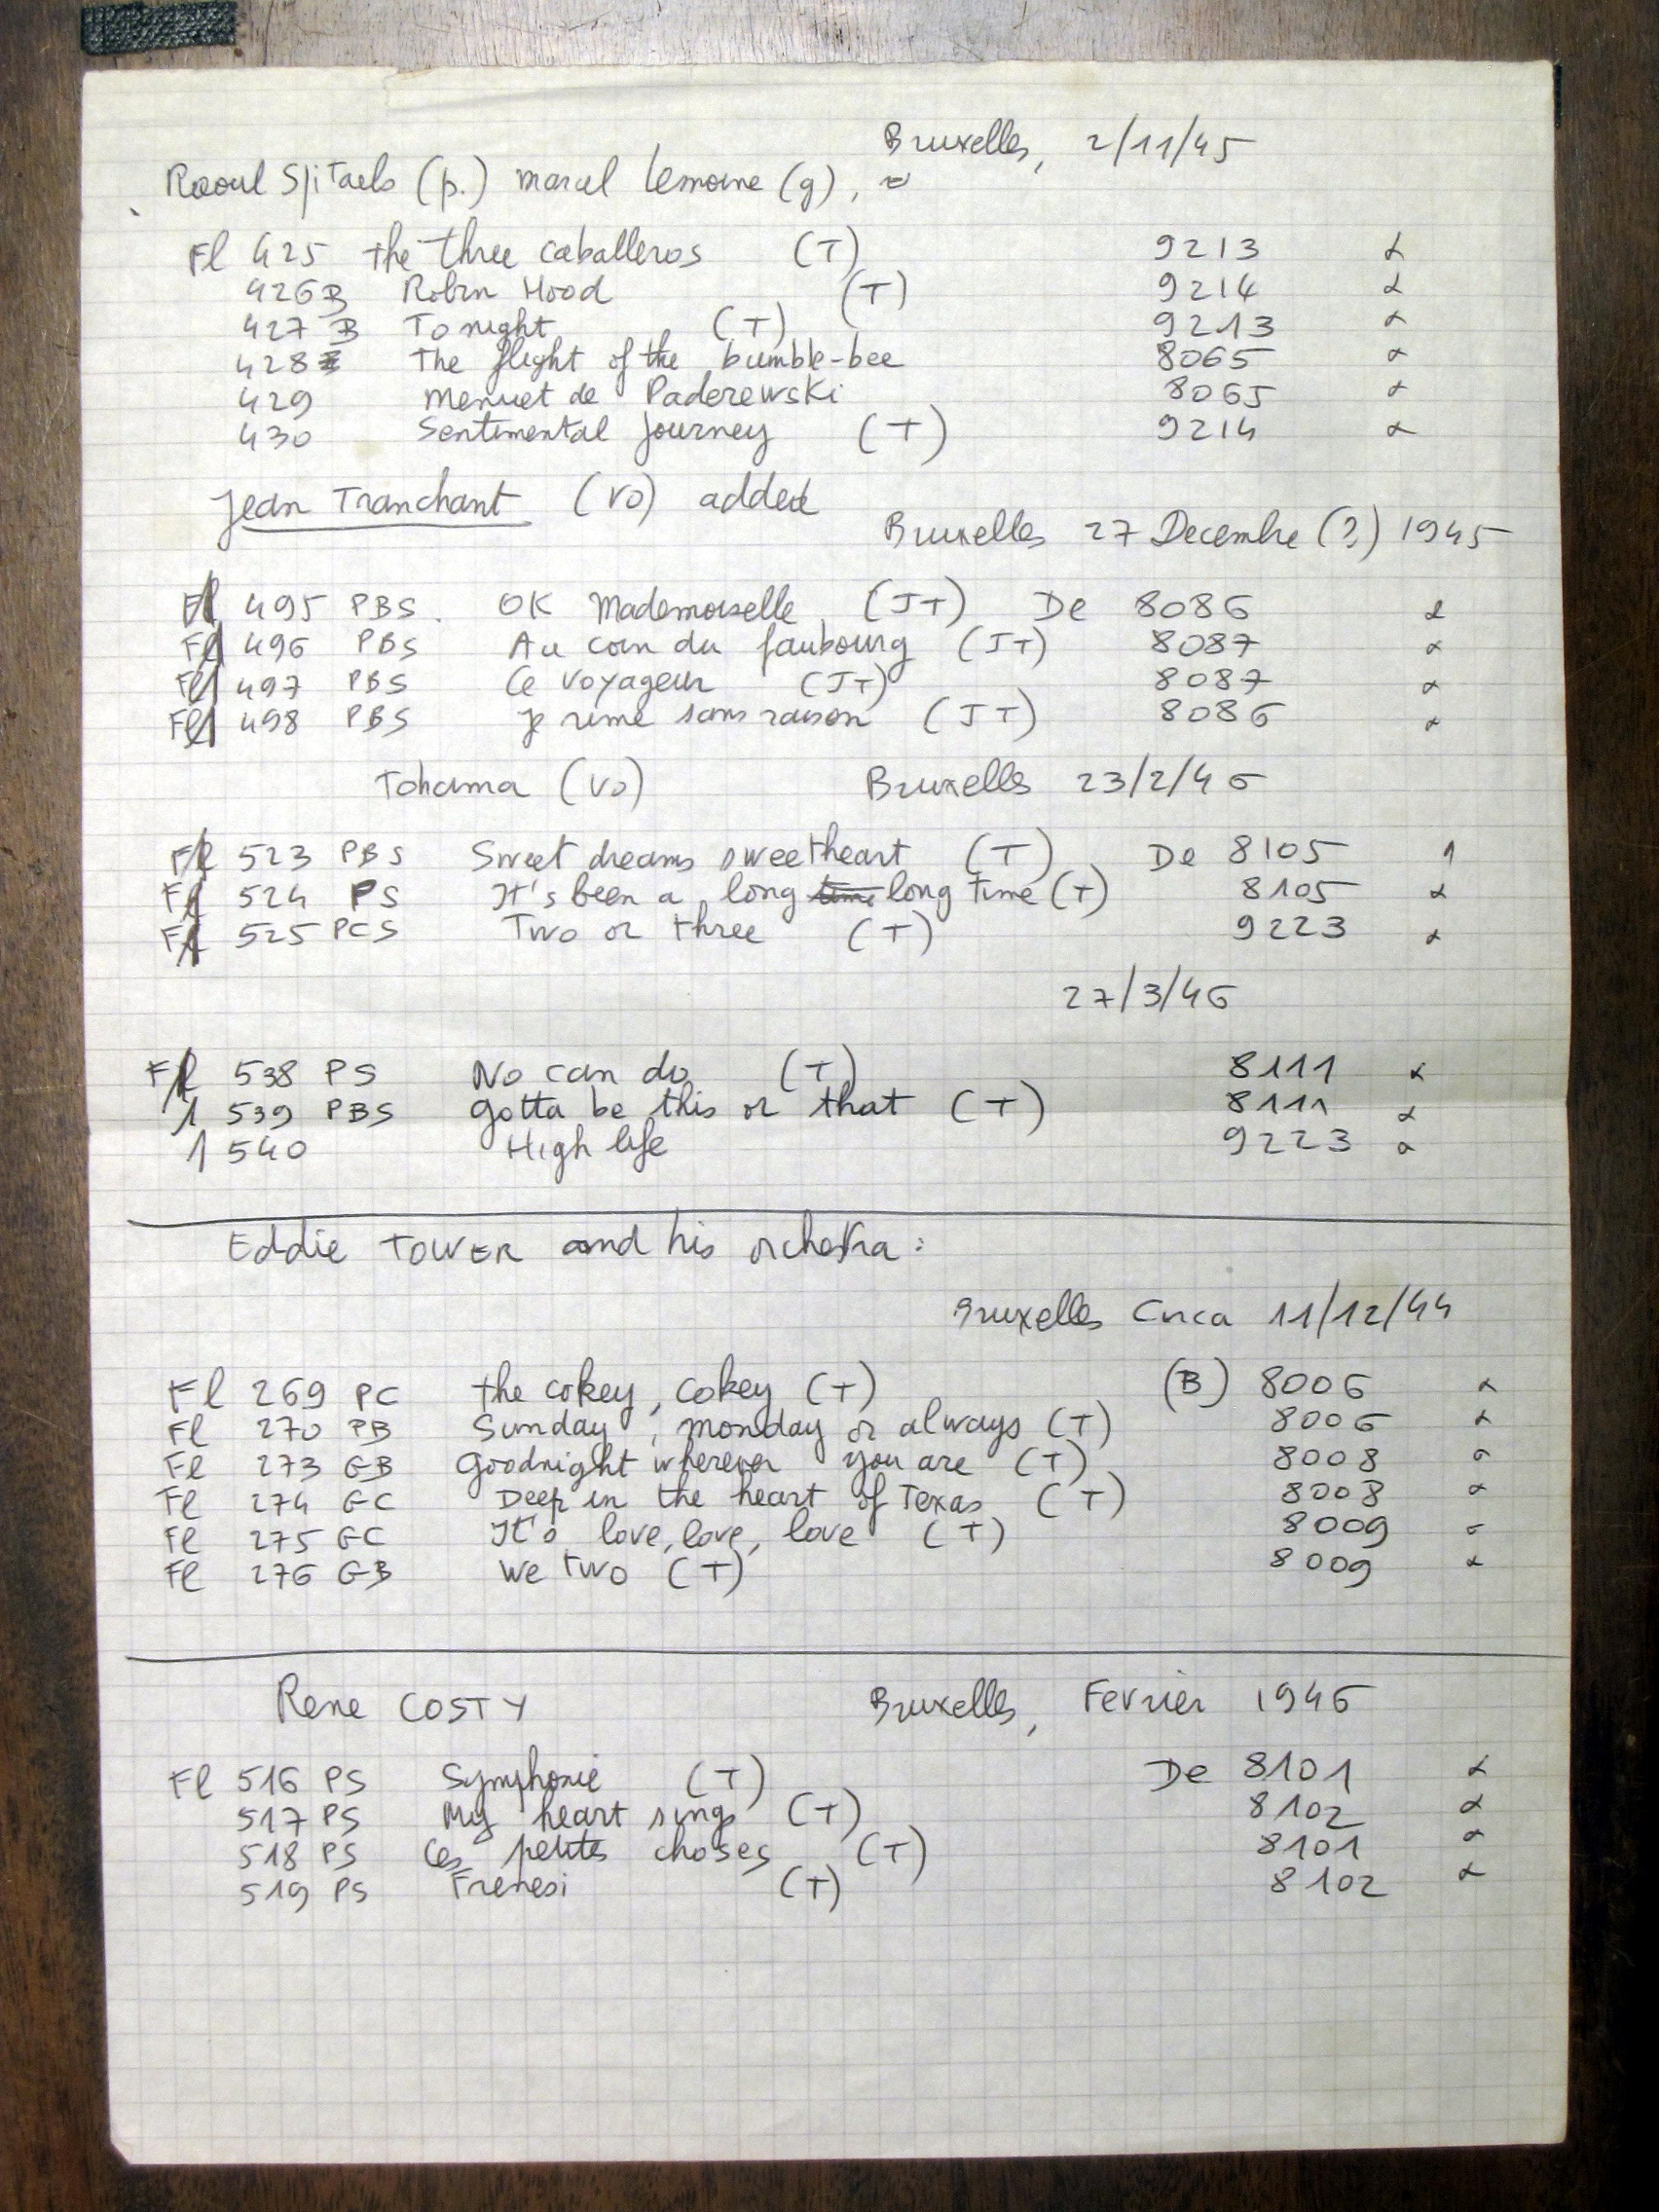 Bruxelles, 2/11/45
Raoul Spitaels (p.) marcel Lemoine (g),
Fl 425 the three caballeros (T) 9213 α
426B Robin Hood (T) 9214 α
427 B Tonight (T) 9213 α
428 The flight of the bumble-bee 8065 α
429 Menuet de Paderewski 8065 α
430 Sentimental journey (T) 9214 α
Jean Tranchant (vo) added
Bruxelles 27 Decembre (?) 1945
Fl 495 PBS. OK Mademoiselle (JT) De 8086 α
Fl 496 PBS Au coin du faubourg (JT) 8087 α
Fl 497 PBS Ce voyageur (JT) 8087 α
Fl 498 PBS Je rime sans raison (JT) 8086 α
Tohama (vo) Bruxelles 23/2/46
Fl 523 PBS Sweet dreams sweetheart (T) De 8105 1
Fl 524 PS It's been a long time long time (T) 8105 α
Fl 525 PCS Two or three (T) 9223 α
27/3/46
Fl 538 PS No can do (T) 8111 α
1 539 PBS Gotta be this or that (T) 8111 α
1 540 High life 9223 α
Eddie TOWER and his orchestra :
Bruxelles Circa 11/12/44
Fl 269 PC the cokey, cokey (T) (B) 8006 α
Fl 270 PB Sunday, monday or always (T) 8006 α
Fl 273 GB Goodnight wherever you are (T) 8008 α
Fl 274 GC Deep in the heart of Texas (T) 8008 α
Fl 275 GC It's love, love, love (T) 8009 α
Fl 276 GB We two (T) 8009 α
Rene COSTY Bruxelles, Fevrier 1946
Fl 516 PS Symphonie (T) De 8101 α
517 PS My heart sings (T) 8102 α
518 PS Ces petites choses (T) 8101 α
519 PS Frenesi (T) 8102 α